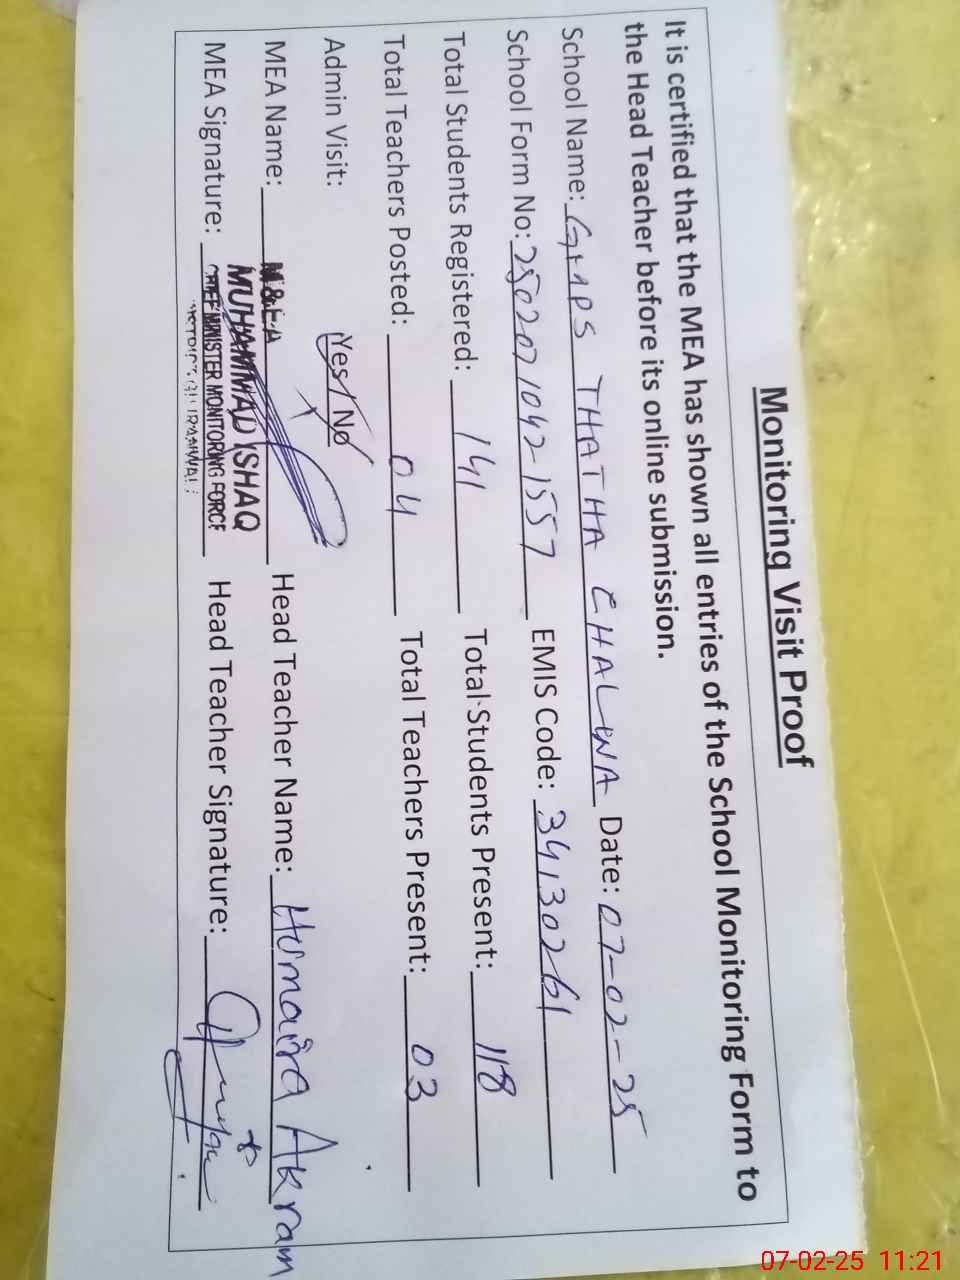 Monitoring Visit Proof
It is certified that the MEA has shown all entries of the School Monitoring Form to
the Head Teacher before its online submission.
School Name: GMPS THATHA CHALWNA Date: 07-02-25
School Form No: 2502071042-1557 EMIS Code: 34130261
Total Students Registered: 141 Total Students Present: 118
Total Teachers Posted: 04 Total Teachers Present: 03
Admin Visit: Yes / No
MEA Name: Head Teacher Name: Humaira Akram
M&EA
MUHAMMAD ISHAQ
MEA Signature: Head Teacher Signature:
CHIEF MINISTER MONITORING FORCE
07-02-25 11:21